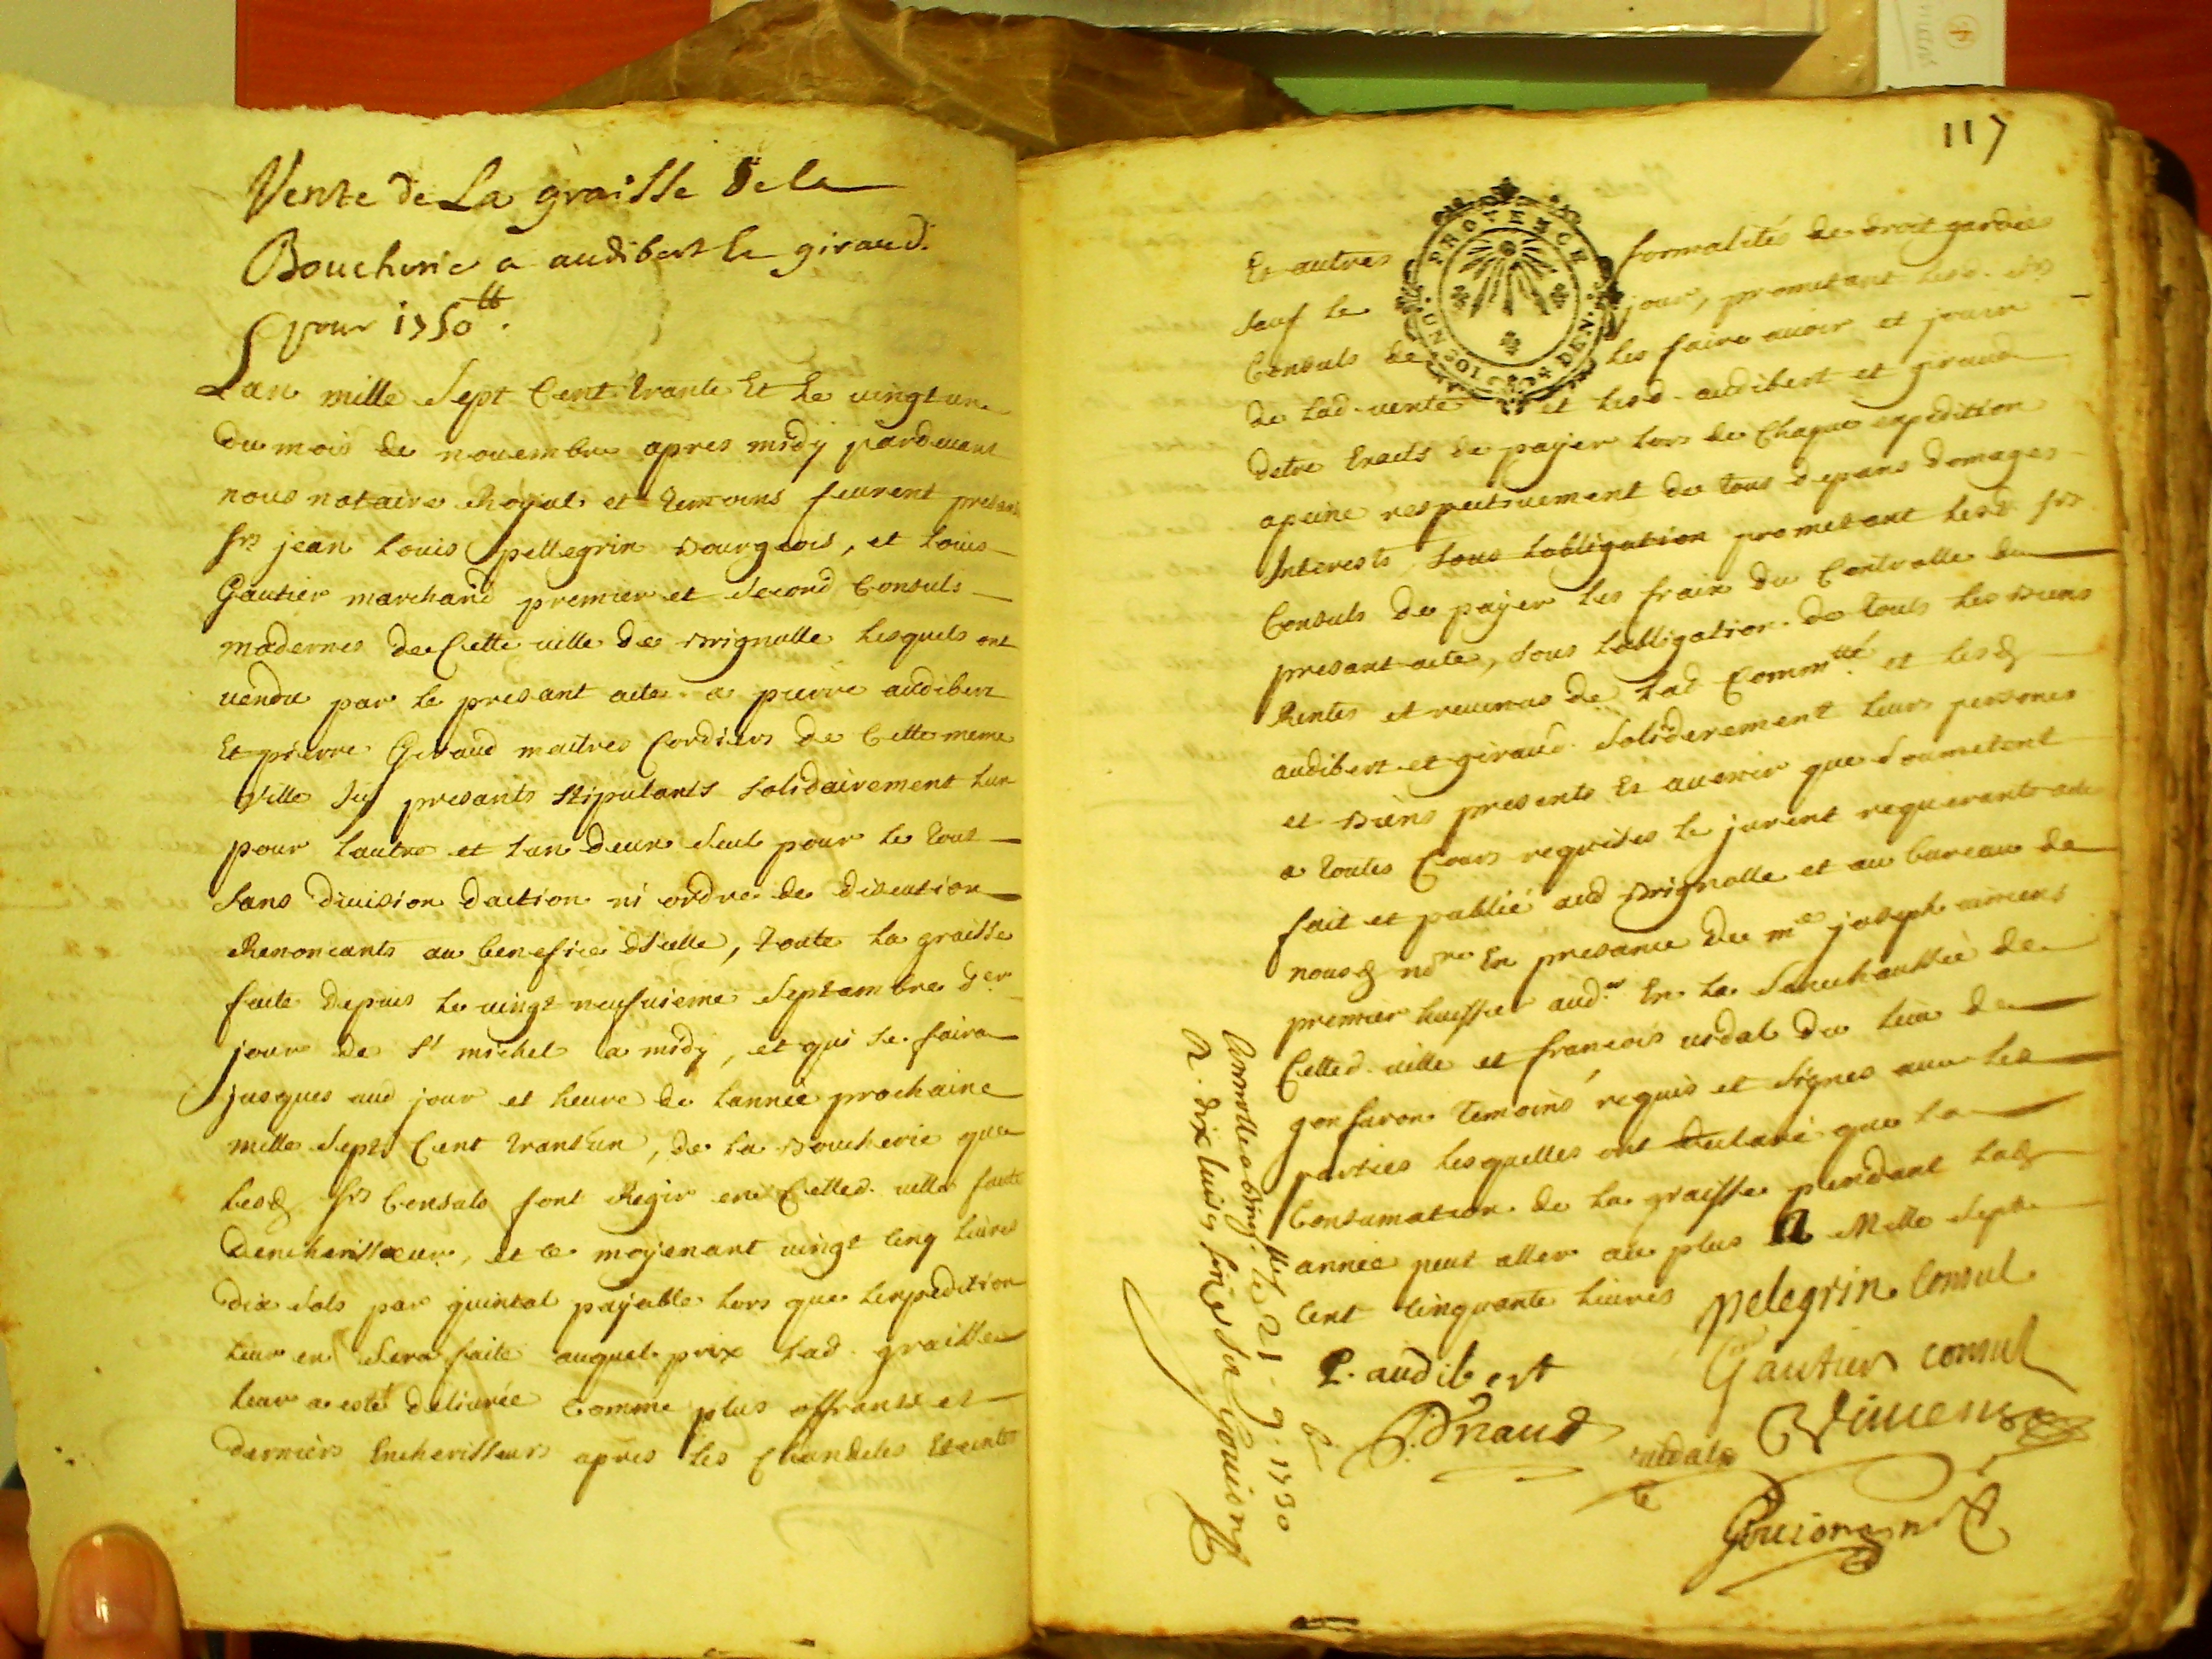 Vente de La graisse de la
Boucherie a audibert le giraud.
pour 1750tt.
Lan mille Sept Cent trante Et le vingt un
du mois de novembre apres midy pardevant
nous notaire Royal et temoins feurent presants
srs jean Louis pellegrin Bourgeois, et Louis
Gautier marchand premier et Second Consuls
modernes de Cette ville de Brignolle lesquels ont
vendu par le presant acte a pierre audibert
Et pierre Giraud maitres Cordiers de Cette meme
Ville Icy presants Stipulants Solidairement lun
pour lautre et lun deux Seul pour le tout
Sans division daction ni ordre de discution
Renoncants au benefice dicelle, toute la graisse
faite depuis le vingt neufvieme Septambre der
jour de St michel a midy, et qui se faira
jusques aud jour et heure de lannée prochaine
mille Sept Cent trant'un, de la Boucherie que
lesd srs Consuls font Regir en Cetted. ville faute
dencherisseur, et ce moyenant vingt Cinq livres
dix Sols par quintal payable lors que lexpedition
leur en Sera faite auquel prix lad. graisse
leur a esté délivrée Comme plus offrants et
derniers Encherisseurs apres les Chandeles Eteintes
117
PROVENCE
UN SOL DEN.
Et autres formalités de droit gardées
Sauf le jour, prometant lesd. srs
Consuls de les faire avoir et jouir
de lad. vente et lesd. audibert et giraud
detre Exacts de payer lors de Chaque expedition
a peine respectivement de tous depans domages
Interests Sous lobligation prometant lesd srs
Consuls de payer les frais du Controlle du
presant acte, Sous lobligation de touts les Biens
Rentes et revenus de lad Commtté. et lesd
audibert et giraud Soliderement leurs persones
et Biens presents Et avenir que Soumetent
a toutes Cours requises le jurent requerants acte
fait et publié aud Brignolle et au bureau de
nousd nore En presance de me joseph
premier huissier audr. En la Senechaussée de
Cetted. ville et francois vidal du lieu de
gonfaron temoins requis et Signes avec les
parties lesquelles ont declaré que la
Consumation de la graisse pendant lad
année peut aller au plus a Mille Sept
Cent Cinquante livres
pelegrin Consul
P. audibert
Gautier consul
P. Giraud
vidal
Goujon
Controllé a Brigolles le 21. 9: 1730
R. dix livres